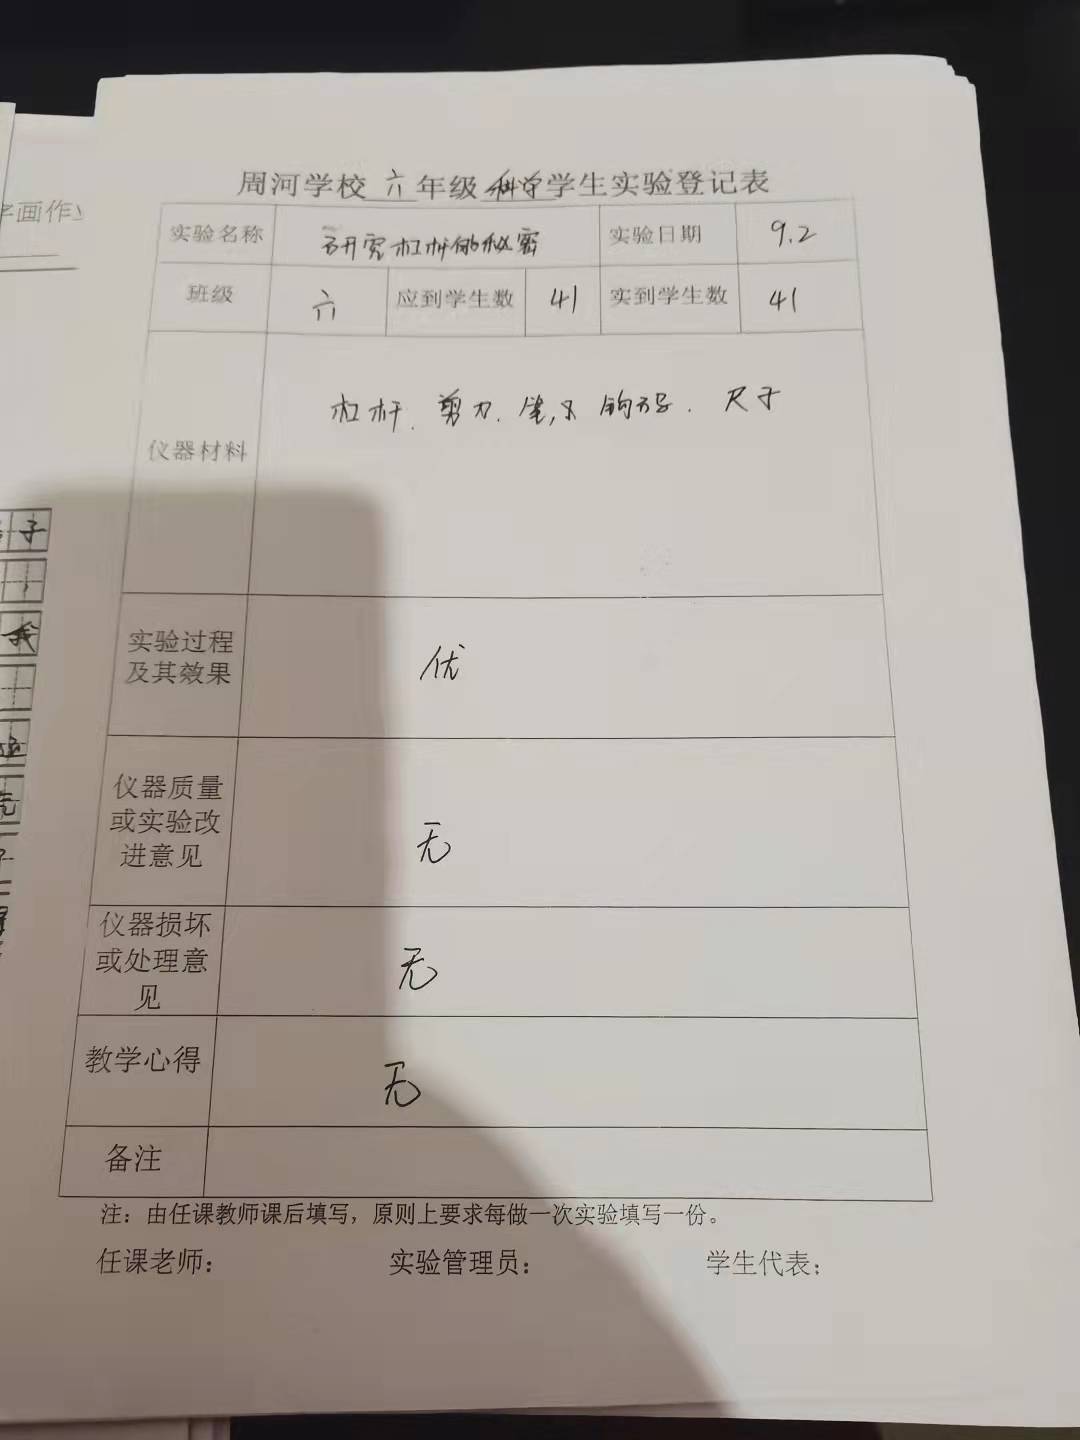 周河学校 六 年级 科学 学生实验登记表
实验名称 研究杠杆的秘密 实验日期 9.2
班级 六 应到学生数 41 实到学生数 41
仪器材料 杠杆. 剪刀. 钩码. 尺子
实验过程
及其效果 优
仪器质量
或实验改
进意见 无
仪器损坏
或处理意
见 无
教学心得 无
备注
注：由任课教师课后填写，原则上要求每做一次实验填写一份。
任课老师： 实验管理员： 学生代表：
字画作
子
我